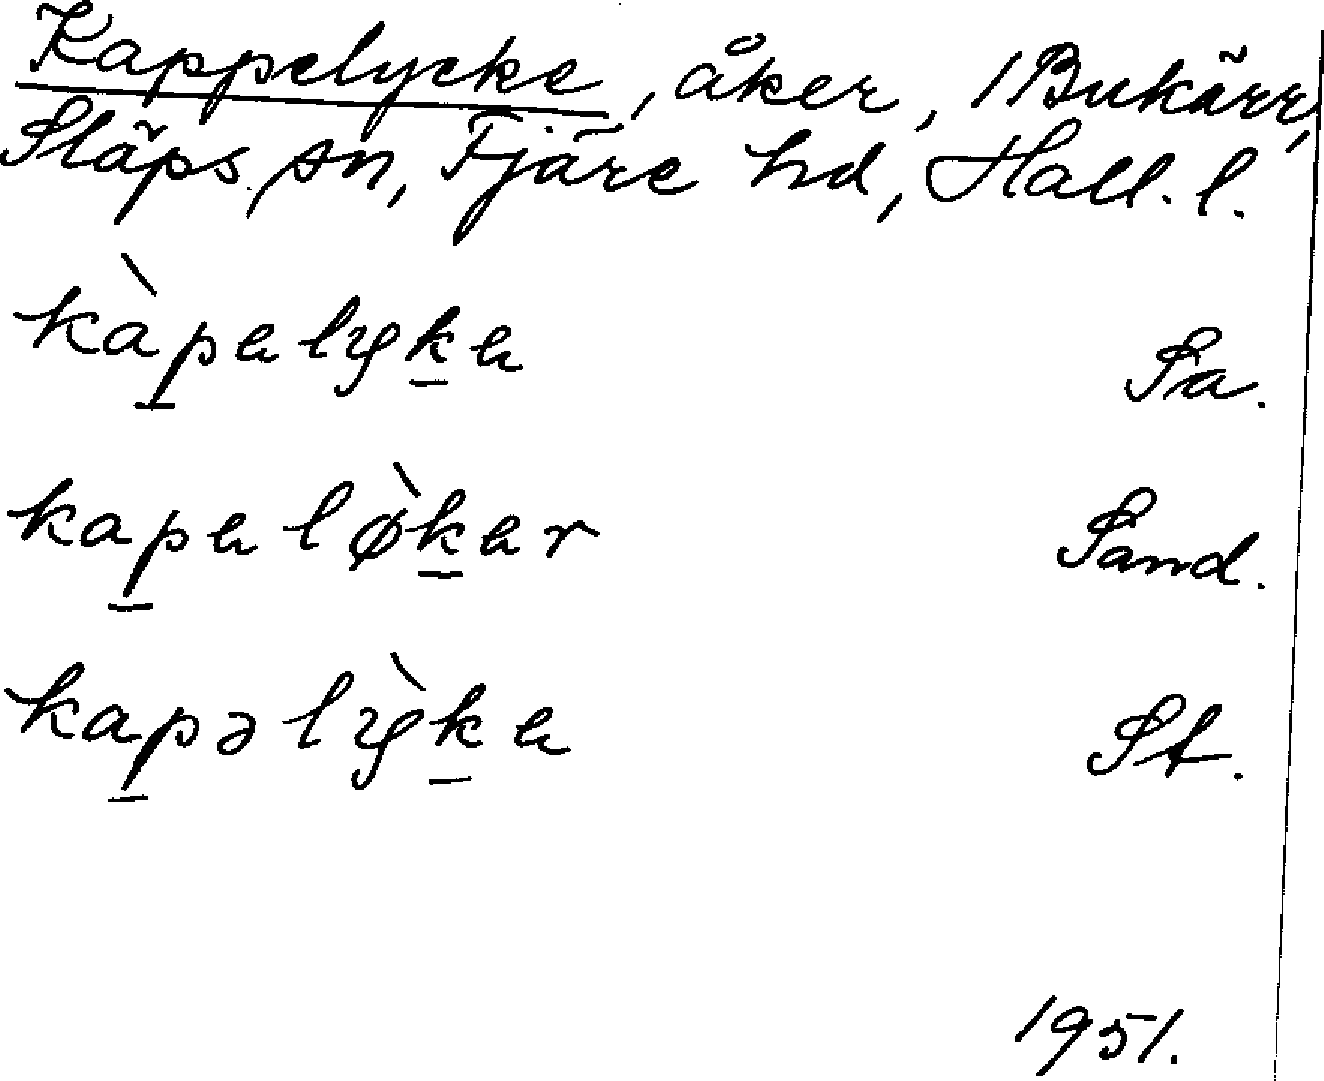 Kappelycke, åker, 1 Bukärr,
Släps sn, Fjäre hd, Hall. l.
kàpelyke Sa.
kapelø̀ker Sand.
kapəlỳke St.
1951.